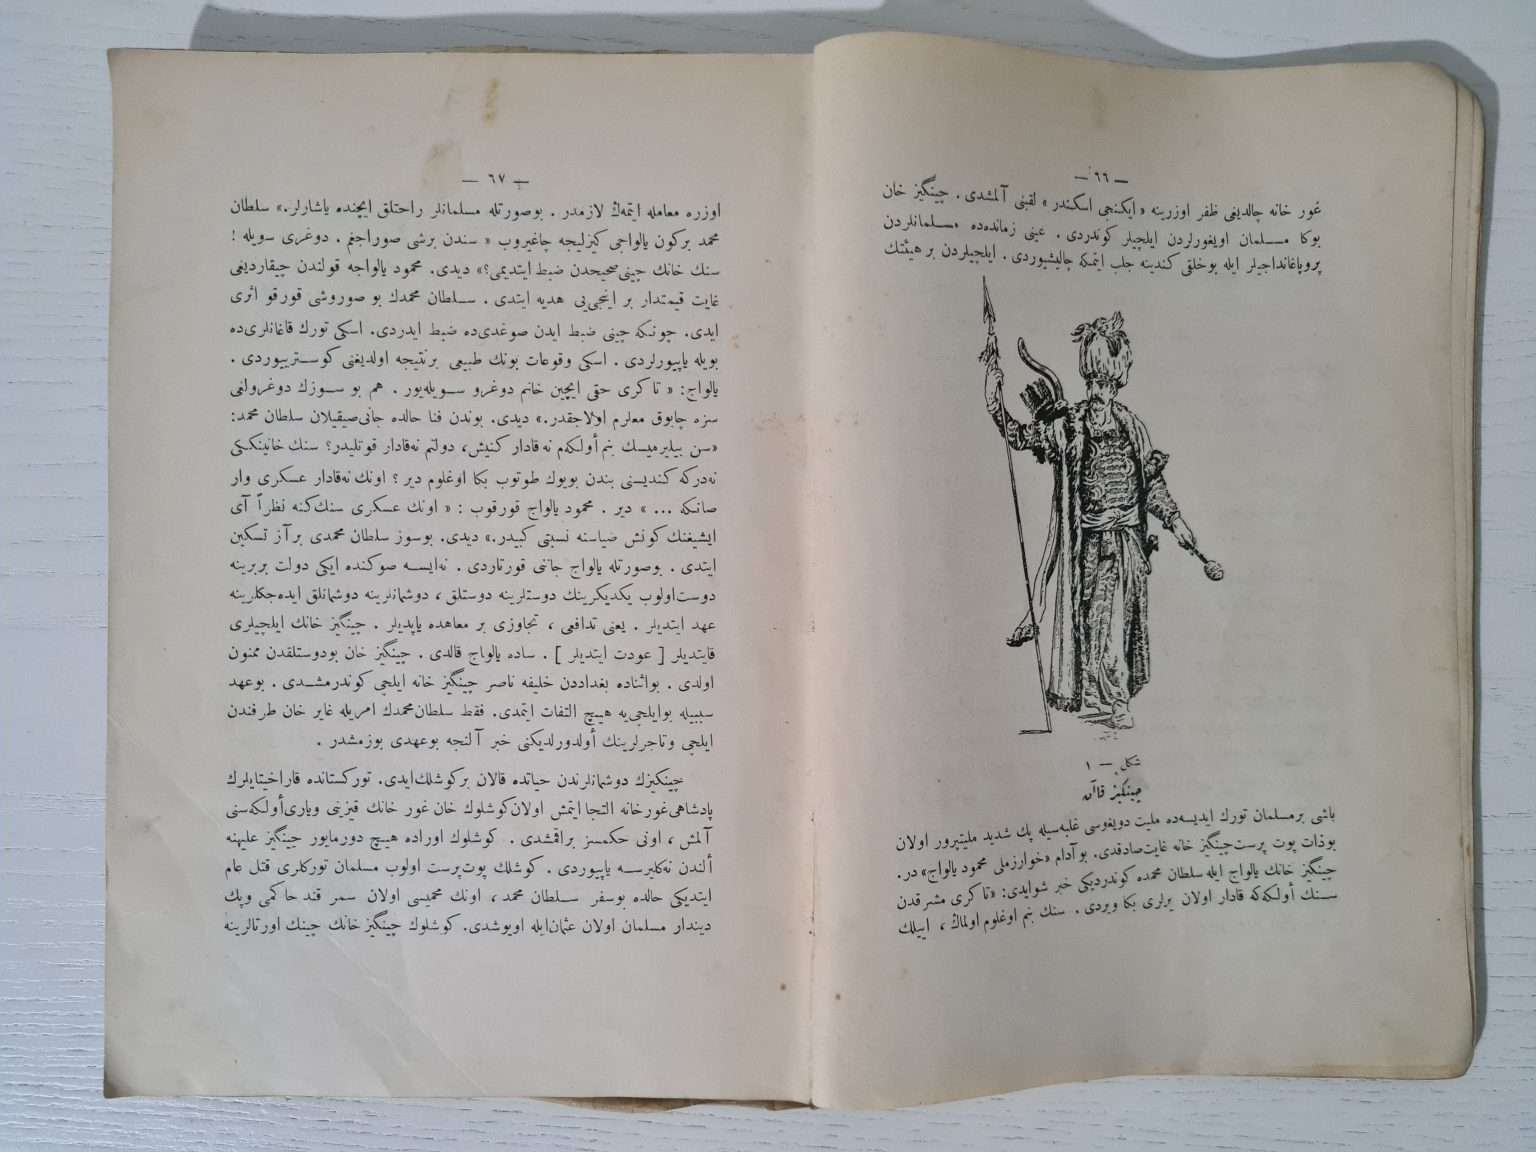 — ٦٦ —
غور خانه چالدیغی ظفر اوزرینه «ایکنجی اسکندر» لقبنی آلمشدی . چینگیز خان
بوکا مسلمان اویغورلردن ایلچیلر کوندردی . عینی زمانده‌ده مسلمانلردن
پروپاغانداجیلر ایله بوخلقی کندینه جلب ایتمکه چالیشیوردی . ایلچیلردن بر هیئتك
شکل — ١
چینکیز قاآن
باشی برمسلمان تورك ایدیسه‌ده ملیت دویغوسی غلبه‌سیله پك شدید ملیتپرور اولان
بوذات پوت پرست‌چینگیز خانه غایت‌صادقدی. بوآدام «خوارزملی محمود یالواج» در.
چینگیز خانك یالواج ایله سلطان محمده کوندردیکی خبر شوایدی: «تاکری مشرقدن
سنك أولکه‌که قادار اولان یرلری بکا ویردی . سنك بنم اوغلوم اولماڭ ، اییلك
— ٦٧ —
اوزره معامله ایتمه‌ڭ لازمدر . بوصورتله مسلمانلر راحتلق ایچنده یاشارلر.» سلطان
محمد برکون یالواجی کیزلیجه چاغیروب « سندن برشی صوراجغم . دوغری سویله !
سنك خانك چینی‌صحیحدن ضبط ایتدیمی؟» دیدی. محمود یالواجه قولندن چیقاردیغی
غایت قیمتدار بر اینجی‌یی هدیه ایتدی . سلطان محمدك بو صوروشی قورقو اثری
ایدی. چونکه چینی ضبط ایدن صوغدی‌ده ضبط ایدردی. اسکی تورك قاغانلری‌ده
بویله یاپیورلردی . اسکی وقوعات بونك طبیعی برنتیجه اولدیغنی کوسترییوردی .
یالواج: « تاکری حقی ایچین خانم دوغرو سویله‌یور . هم بو سوزك دوغرولغی
سزه چابوق معلرم اولاجقدر.» دیدی. بوندن فنا حالده جانی‌صیقیلان سلطان محمد:
«سن بیلیرمیسك بنم أولکه‌م نه‌قادار کنیش، دولتم نه‌قادار قوتلیدر؟ سنك خانینکی
نه‌درکه کندیسنی بندن بویوك طوتوب بکا اوغلوم دیر ؟ اونك نه‌قادار عسکری وار
صانکه ... » دیر . محمود یالواج قورقوب : « اونك عسکری سنك‌کنه نظراً آی
ایشیغنك کونش ضیاسنه نسبتی کبیدر.» دیدی. بوسوز سلطان محمدی برآز تسکین
ایتدی . بوصورتله یالواج جاننی قورتاردی . نه‌ایسه صوکنده ایکی دولت بربرینه
دوست‌اولوب یکدیکرینك دوستلرینه دوستلق ، دوشمانلرینه دوشمانلق ایده‌جکلرینه
عهد ایتدیلر . یعنی تدافعی ، تجاوزی بر معاهده یاپدیلر . چینگیز خانك ایلچیلری
قایتدیلر [ عودت ایتدیلر ] . ساده یالواج قالدی . چینگیز خان بودوستلقدن ممنون
اولدی . بوائناده بغداددن خلیفه ناصر چینگیز خانه ایلچی کوندرمشدی . بوعهد
سببیله بوایلچی‌یه هیچ التفات ایتمدی. فقط سلطان‌محمدك امریله غایر خان طرفندن
ایلچی وتاجرلرینك أولدورلدیکنی خبر آلنجه بوعهدی بوزمشدر .
چینکیزك دوشمانلرندن حیاتده قالان برکوشلك‌ایدی. تورکستانده قاراخیتایلرك
پادشاهی‌غورخانه التجا ایتمش اولان‌کوشلوك خان غور خانك قیزینی ویاری‌أولکه‌سنی
آلمش ، اونی حکمسز براقمشدی . کوشلوك اوراده هیچ دورمایور چینگیز علیهنه
ألندن نه‌کلیرسه یاپیوردی . کوشلك پوت‌پرست اولوب مسلمان تورکلری قتل عام
ایتدیکی حالده بوسفر سلطان محمد ، اونك محمیسی اولان سمر قند حاکمی وپك
دیندار مسلمان اولان عثمان‌ایله اویوشدی. کوشلوك چینگیز خانك چینك اورتالرینه